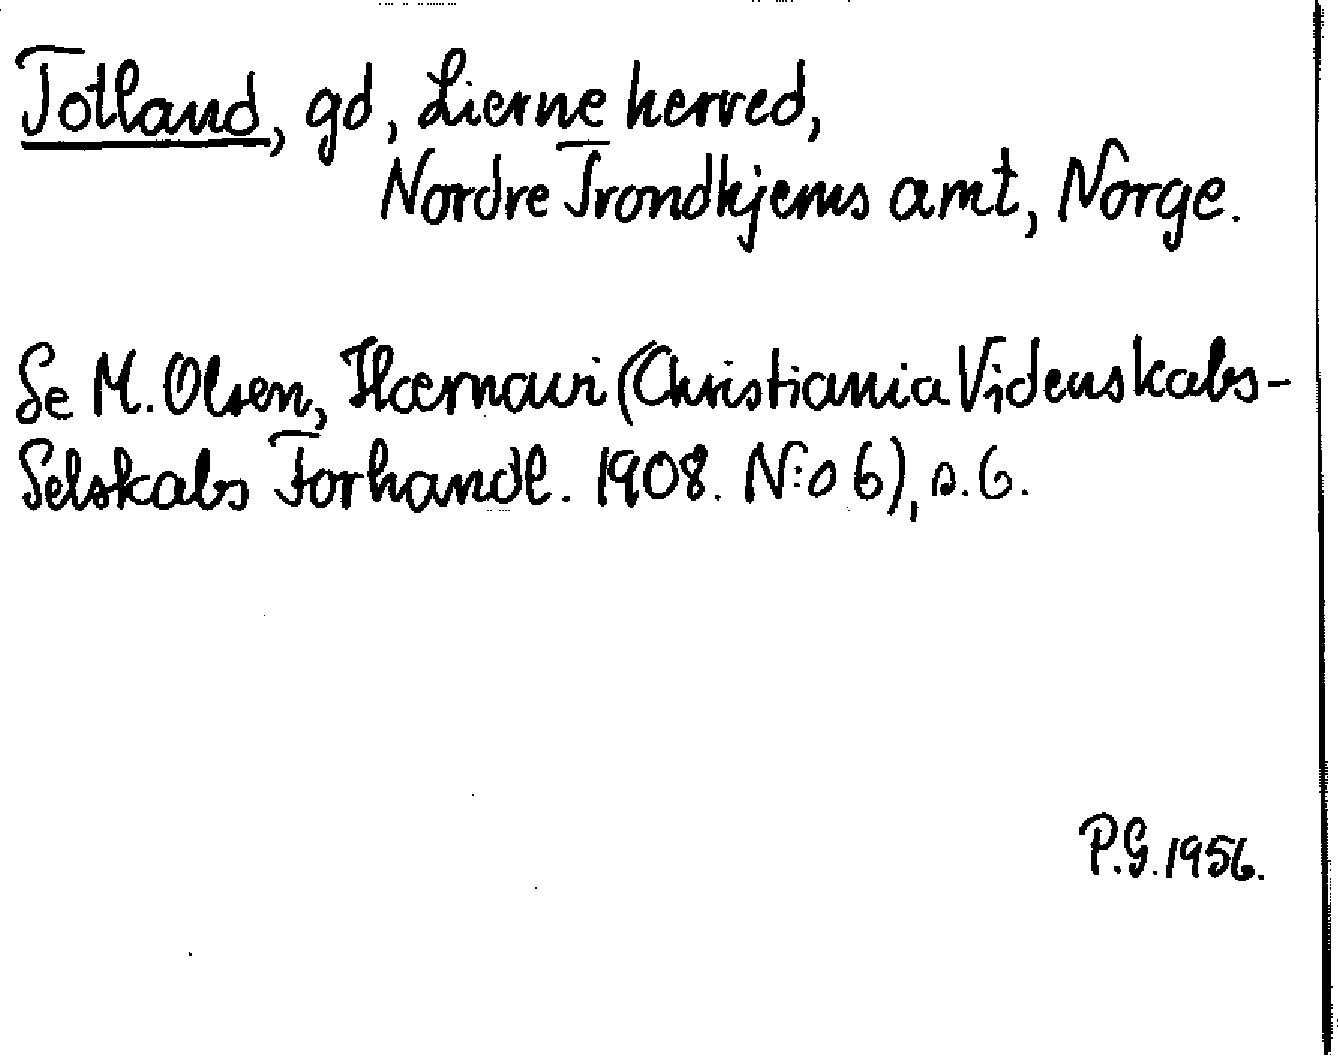 Totland, gd, Lierne herred,
Nordre Trondhjems amt, Norge.
Se M. Olsen, Hærnavi (Christiania Videnskabs-
Selskabs Forhandl. 1908. N:o 6), s. 6.
P.G. 1956.